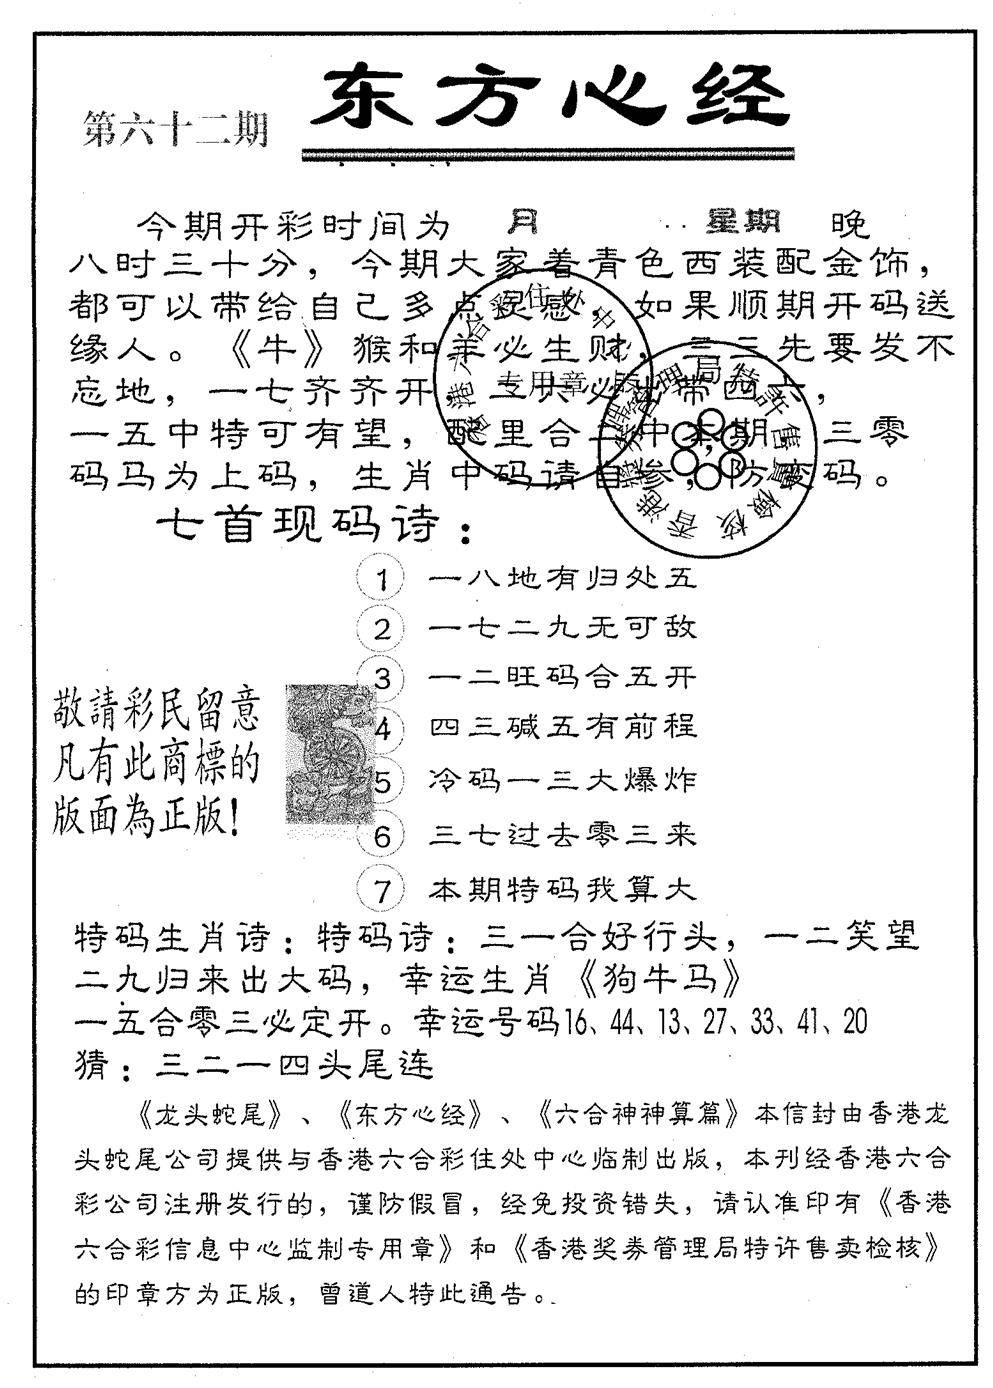 东方心经
第六十二期
今期开彩时间为 月 星期 晚
八时三十分，今期大家着青色西装配金饰，
都可以带给自己多点灵感，如果顺期开码送
缘人。《牛》猴和羊必生财，三三先要发不
忘地，一七齐齐开，二六必出带四六，
一五中特可有望，配里合一中本期，三零
码马为上码，生肖中码请自参，防 码。
七首现码诗：
1 一八地有归处五
2 一七二九无可敌
3 一二旺码合五开
4 四三碱五有前程
5 冷码一三大爆炸
6 三七过去零三来
7 本期特码我算大
敬請彩民留意
凡有此商標的
版面為正版！
特码生肖诗：特码诗：三一合好行头，一二笑望
二九归来出大码，幸运生肖《狗牛马》
一五合零三必定开。幸运号码16、44、13、27、33、41、20
猜：三二一四头尾连
《龙头蛇尾》、《东方心经》、《六合神神算篇》本信封由香港龙
头蛇尾公司提供与香港六合彩住处中心临制出版，本刊经香港六合
彩公司注册发行的，谨防假冒，经免投资错失，请认准印有《香港
六合彩信息中心监制专用章》和《香港奖券管理局特许售卖检核》
的印章方为正版，曾道人特此通告。
香港六合彩住处中心
专用章
香港獎券管理局特許售賣檢核